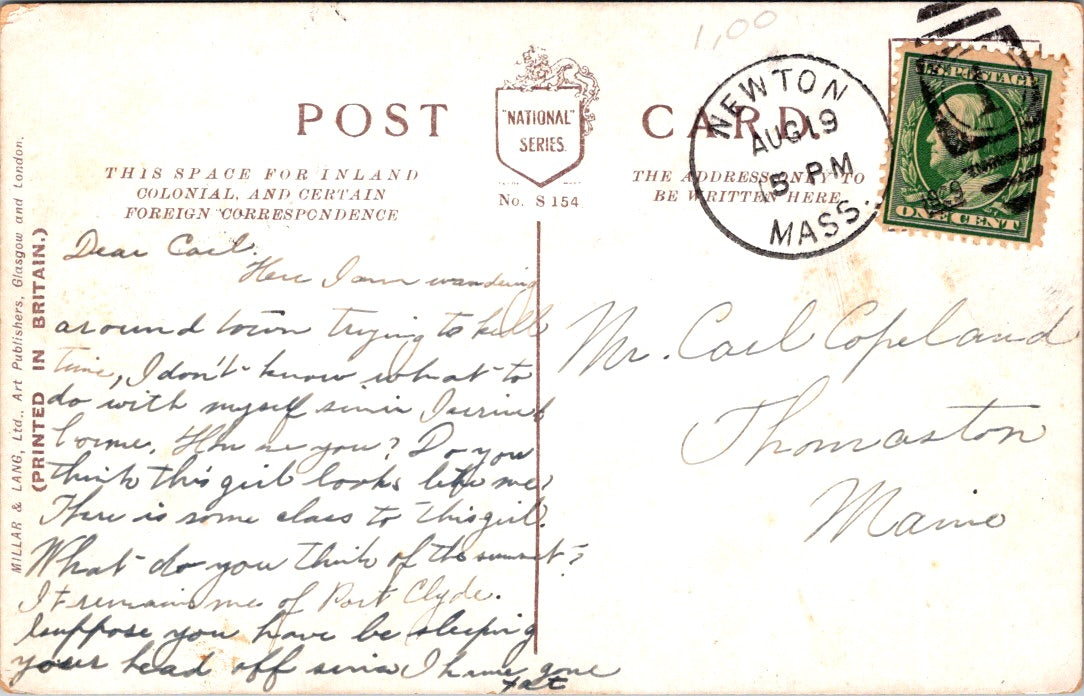 1,00
POST CARD.
"NATIONAL"
SERIES.
No. S 154
THIS SPACE FOR INLAND
COLONIAL, AND CERTAIN
FOREIGN CORRESPONDENCE
THE ADDRESS ONLY TO
BE WRITTEN HERE
NEWTON
AUG 19
5 - PM
MASS.
1909
U.S. POSTAGE
ONE CENT
MILLAR & LANG, Ltd., Art Publishers, Glasgow and London.
(PRINTED IN BRITAIN.)
Dear Carl.
Here I am wandering
around town trying to kill
time, I don't know what to
do with myself since I arrived
home. How are you? Do you
think this girl looks like me?
There is some class to this girl.
What do you think of the sunset?
It remains me of Port Clyde.
I suppose you have be sleeping
your head off since I have gone
Mr. Carl Copeland
Thomaston
Maine